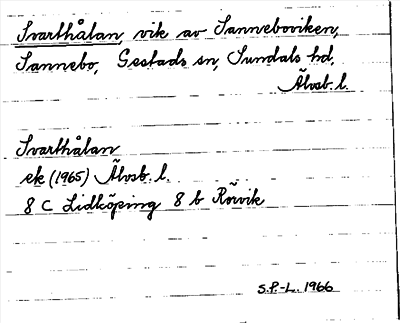 Svarthålan, vik av Sanneboviken,
Sannebo, Gestads sn, Sundals hd,
Älvsb. l.
Svarthålan
ek (1965) Älvsb. l.
8 C Lidköping 8 b Rörvik
S.P.-L. 1966